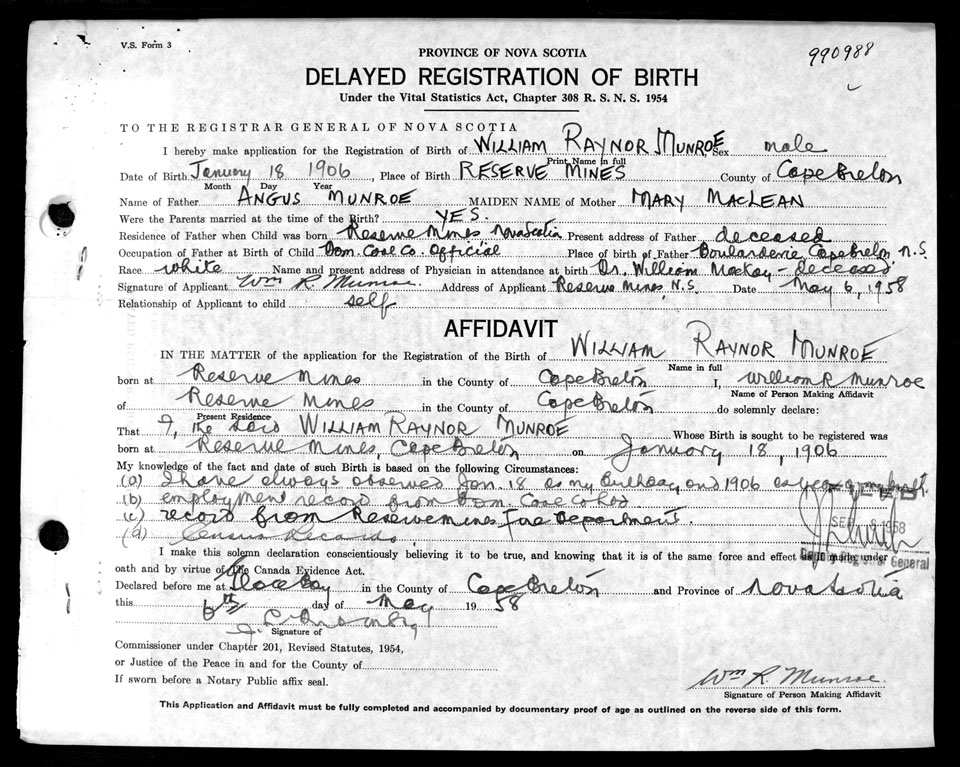 V.S. Form 3
990988
PROVINCE OF NOVA SCOTIA
DELAYED REGISTRATION OF BIRTH
Under the Vital Statistics Act, Chapter 308 R. S. N. S. 1954
TO THE REGISTRAR GENERAL OF NOVA SCOTIA
I hereby make application for the Registration of Birth of WILLIAM RAYNOR MUNROE Sex male
Print Name in full
Date of Birth January 18 1906, Place of Birth RESERVE MINES County of Cape Breton
Month Day Year
Name of Father ANGUS MUNROE MAIDEN NAME of Mother MARY MACLEAN
Were the Parents married at the time of the Birth? YES.
Residence of Father when Child was born Reserve Mines Nova Scotia Present address of Father deceased
Occupation of Father at Birth of Child Dom. Coal Co. Official Place of birth of Father Boularderie Cape Breton N.S.
Race white Name and present address of Physician in attendance at birth Dr. William MacKay - deceased
Signature of Applicant Wm R. Munroe Address of Applicant Reserve Mines, N.S. Date May 6, 1958
Relationship of Applicant to child self
AFFIDAVIT
IN THE MATTER of the application for the Registration of the Birth of WILLIAM RAYNOR MUNROE
Name in full
born at Reserve Mines in the County of Cape Breton I, William R Munroe
Name of Person Making Affidavit
of Reserve Mines in the County of Cape Breton do solemnly declare:
Present Residence
That I, the said WILLIAM RAYNOR MUNROE Whose Birth is sought to be registered was
born at Reserve Mines, Cape Breton on January 18, 1906
My knowledge of the fact and date of such Birth is based on the following Circumstances:
(a) I have always observed Jan. 18 as my birthday, and 1906 as year of my birth.
(b) employment record from Dom Coal Co
(c) record from Reserve Mines Fire Department.
(d) Census Records
I make this solemn declaration conscientiously believing it to be true, and knowing that it is of the same force and effect as if made under
Registrar General
oath and by virtue of the Canada Evidence Act.
Declared before me at Glace Bay in the County of Cape Breton and Province of Nova Scotia
this 6th day of May 1958
Signature of
Commissioner under Chapter 201, Revised Statutes, 1954,
or Justice of the Peace in and for the County of
If sworn before a Notary Public affix seal.
Wm R. Munroe
Signature of Person Making Affidavit
This Application and Affidavit must be fully completed and accompanied by documentary proof of age as outlined on the reverse side of this form.